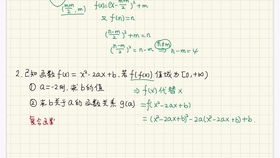 (m+n/2, m) f(x)=(x-m+n/2)²+m
又 f(n)=n
(n-m/2)²+m=n
(n-m/2)²=n-m ⟹ n-m=4
2. 已知函数 f(x)=x²-2ax+b. 若 f(f(x)) 值域为 [0,+∞)
① a=-2时, 求 b的值 ⇒ f(x) 代替 x
② 求 b关于 a的函数关系 g(a) = f(x²-2ax+b)
复合函数 = (x²-2ax+b)²-2a(x²-2ax+b)+b.